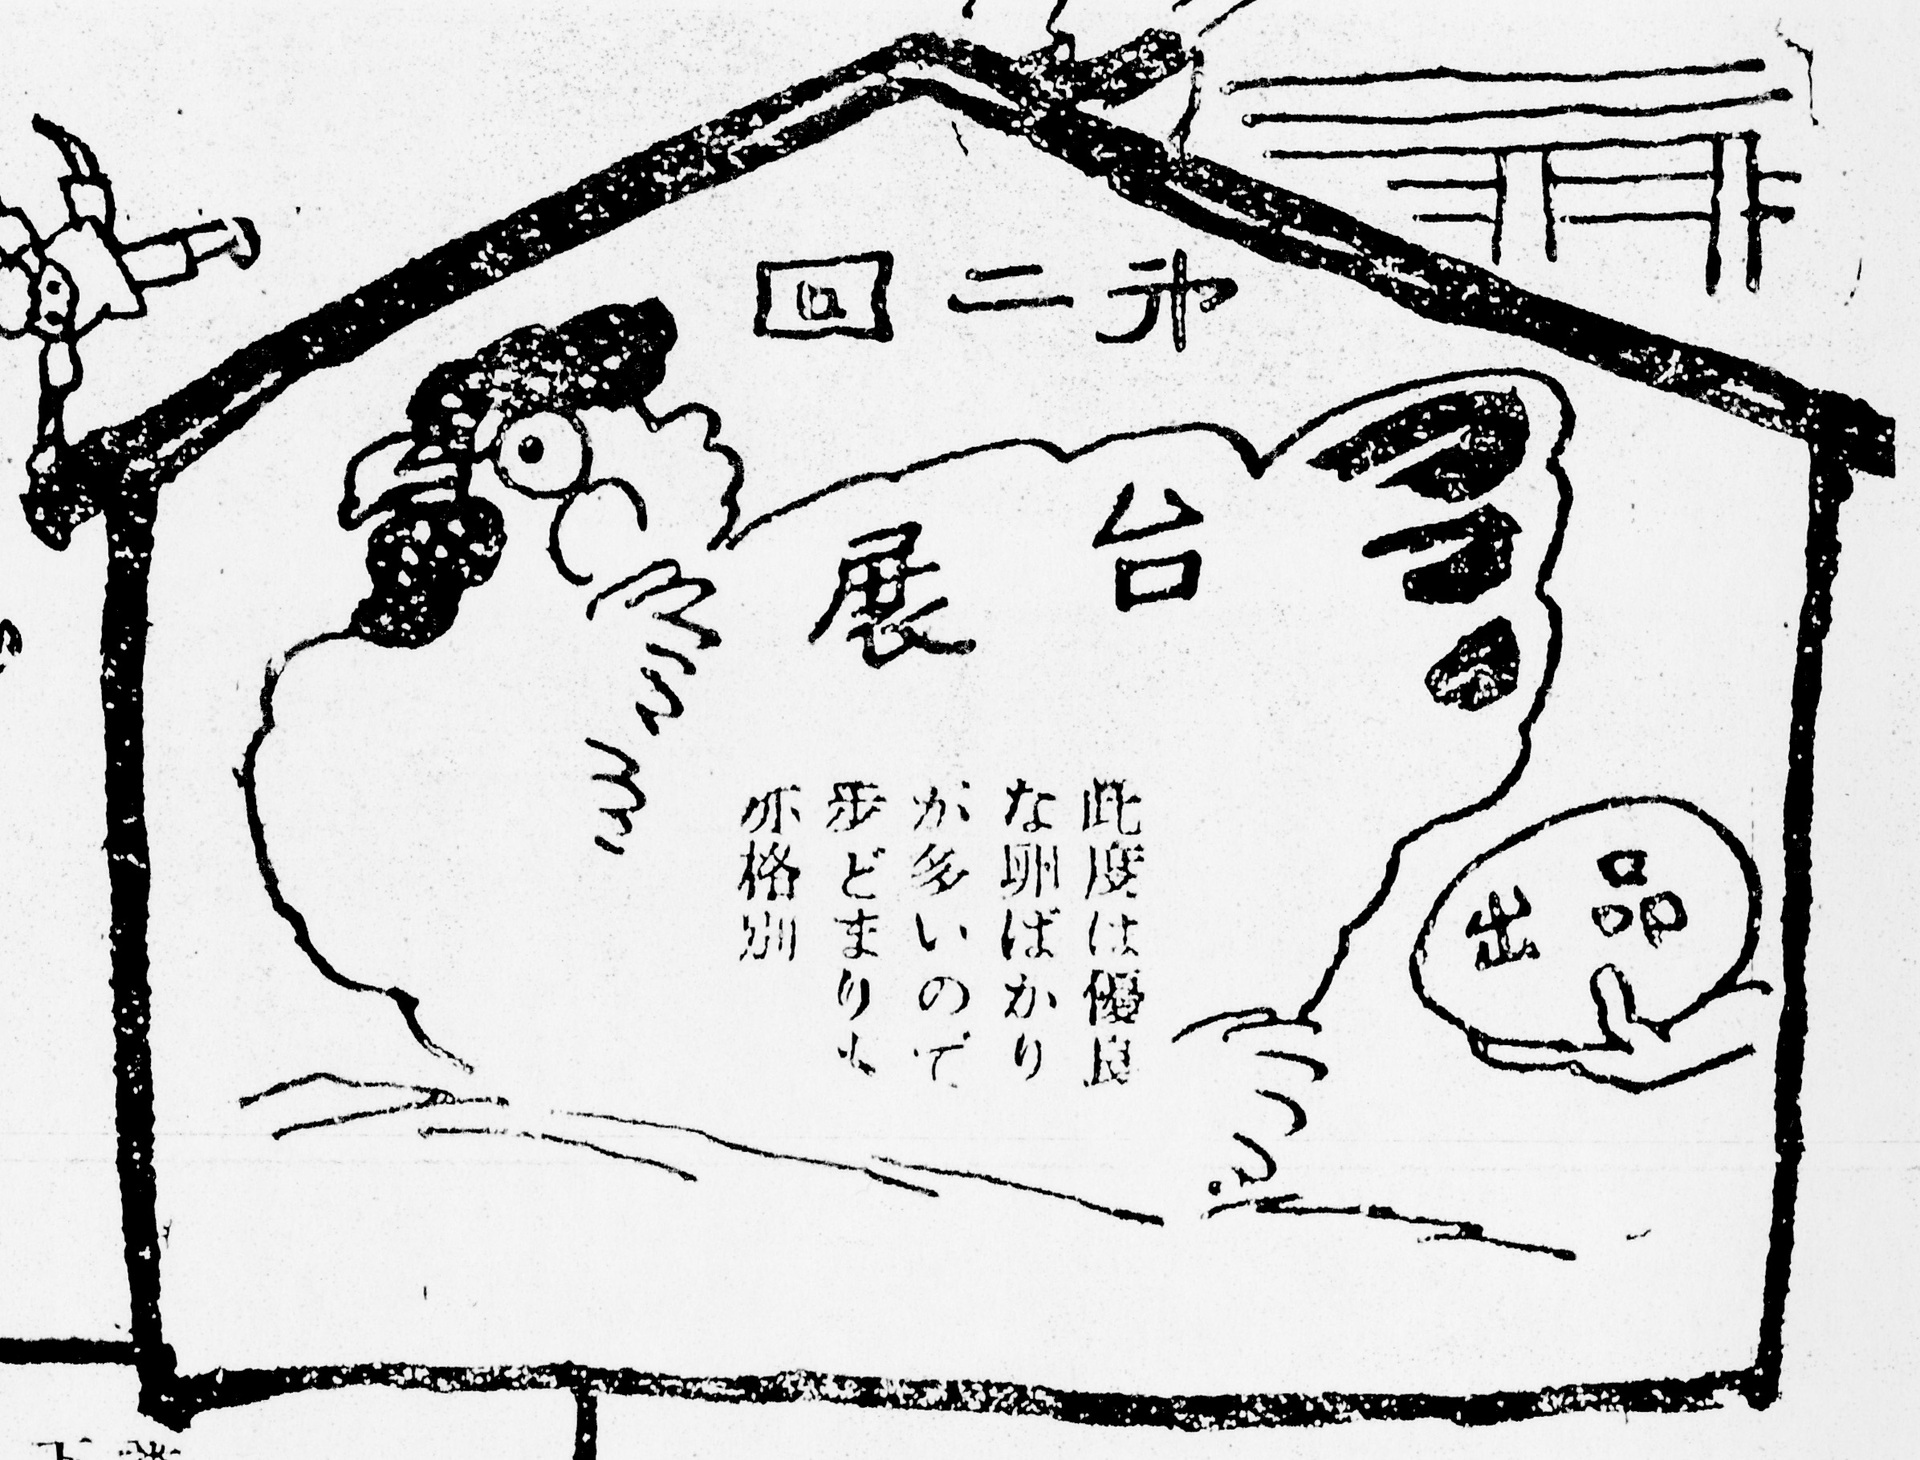 第二回
台展
此度は優良
な卵ばかり
が多いので
歩どまりも
亦格別
出品